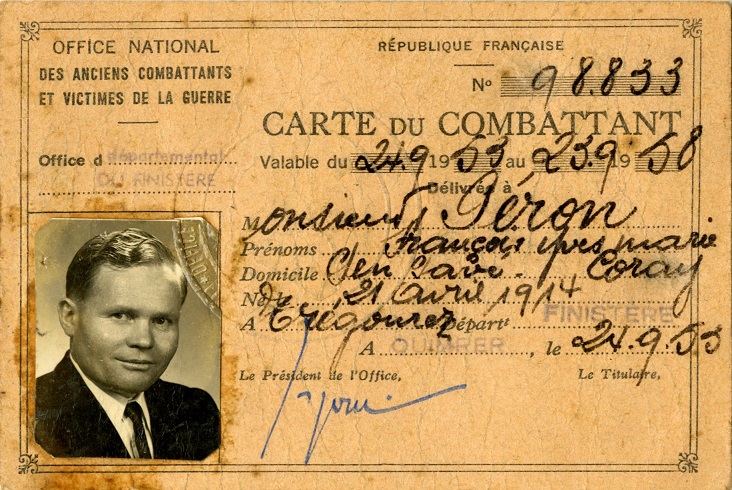 OFFICE NATIONAL
DES ANCIENS COMBATTANTS
ET VICTIMES DE LA GUERRE
Office d départemental
DU FINISTÈRE
RÉPUBLIQUE FRANÇAISE
No 98.833
CARTE DU COMBATTANT
Valable du 24.9 1953 au 23.9 1958
Délivrée à
Monsieur Péron
Prénoms François yves marie
Domicile Coray
Né le 21 avril 1914
A Trégourez Départt FINISTÈRE
A QUIMPER, le 24.9.53
Le Président de l'Office,
Le Titulaire,